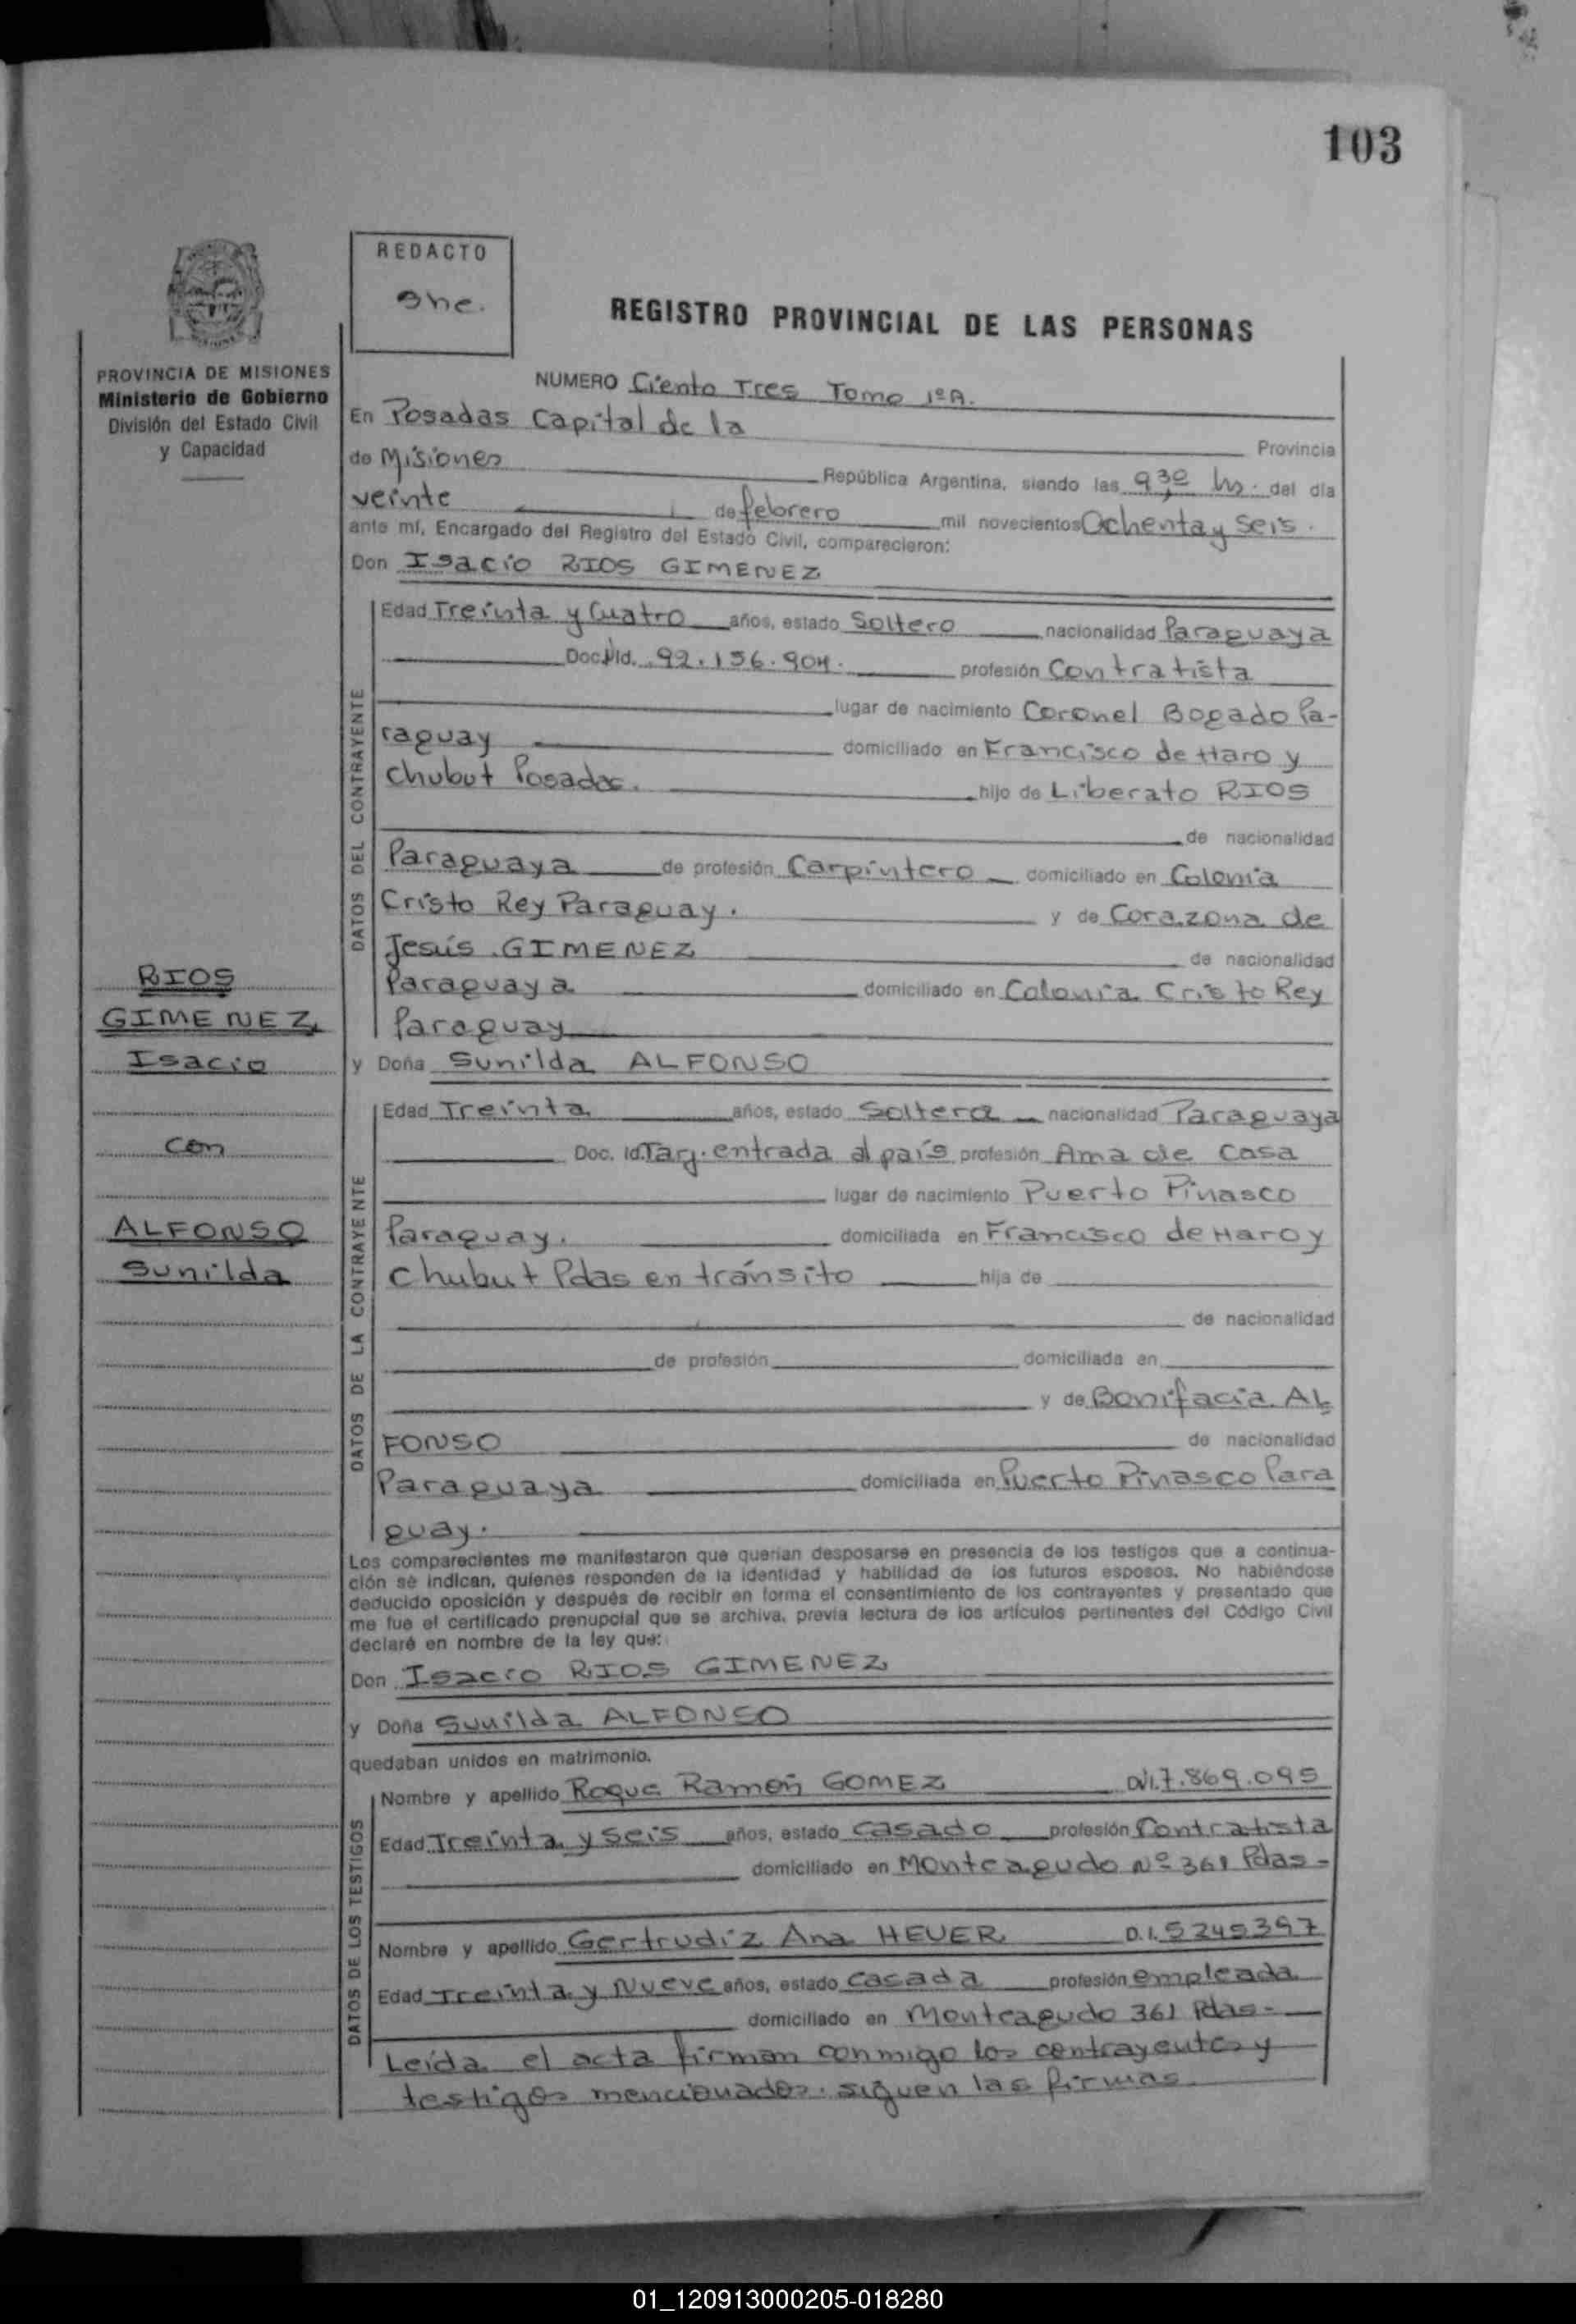 103
REDACTO
She.
REGISTRO PROVINCIAL DE LAS PERSONAS
PROVINCIA DE MISIONES
Ministerio de Gobierno
División del Estado Civil
y Capacidad
NUMERO Ciento Tres Tomo 1º A.
En Posadas Capital de la Provincia
de Misiones República Argentina, siendo las 9,30 hs. del día
veinte de febrero mil novecientos Ochenta y Seis.
ante mí, Encargado del Registro del Estado Civil, comparecieron:
Don Isacio RIOS GIMENEZ
DATOS DEL CONTRAYENTE
Edad Treinta y Cuatro años, estado Soltero nacionalidad Paraguaya
Doc. Id. 92.156.904. profesión Contratista
lugar de nacimiento Coronel Bogado Pa-
raguay domiciliado en Francisco de Haro y
Chubut Posadas. hijo de Liberato RIOS
de nacionalidad
Paraguaya de profesión Carpintero domiciliado en Colonia
Cristo Rey Paraguay. y de Corazona de
Jesús GIMENEZ de nacionalidad
Paraguaya domiciliado en Colonia Cristo Rey
Paraguay
RIOS
GIMENEZ
Isacio
con
ALFONSO
Sunilda
y Doña Sunilda ALFONSO
DATOS DE LA CONTRAYENTE
Edad Treinta años, estado Soltera nacionalidad Paraguaya
Doc. Id. Tarj. entrada al país profesión Ama de Casa
lugar de nacimiento Puerto Pinasco
Paraguay. domiciliada en Francisco de Haro y
Chubut Pdas en tránsito hija de
de nacionalidad
de profesión domiciliada en
y de Bonifacia AL
FONSO de nacionalidad
Paraguaya domiciliada en Puerto Pinasco Para
guay.
Los comparecientes me manifestaron que querían desposarse en presencia de los testigos que a continua-
ción se indican, quienes responden de la identidad y habilidad de los futuros esposos. No habiéndose
deducido oposición y después de recibir en forma el consentimiento de los contrayentes y presentado que
me fue el certificado prenupcial que se archiva, previa lectura de los artículos pertinentes del Código Civil
declaré en nombre de la ley que:
Don Isacio RIOS GIMENEZ
y Doña Sunilda ALFONSO
quedaban unidos en matrimonio.
DATOS DE LOS TESTIGOS
Nombre y apellido Roque Ramón GOMEZ D.I. 7.869.095
Edad Treinta y seis años, estado casado profesión Contratista
domiciliado en Monteagudo Nº 361 Pdas-
Nombre y apellido Gertrudiz Ana HEUER D.I. 5245397
Edad Treinta y Nueve años, estado casada profesión empleada
domiciliado en Monteagudo 361 Pdas-
Leída el acta firman conmigo los contrayentes y
testigos mencionados. siguen las firmas
01_120913000205-018280